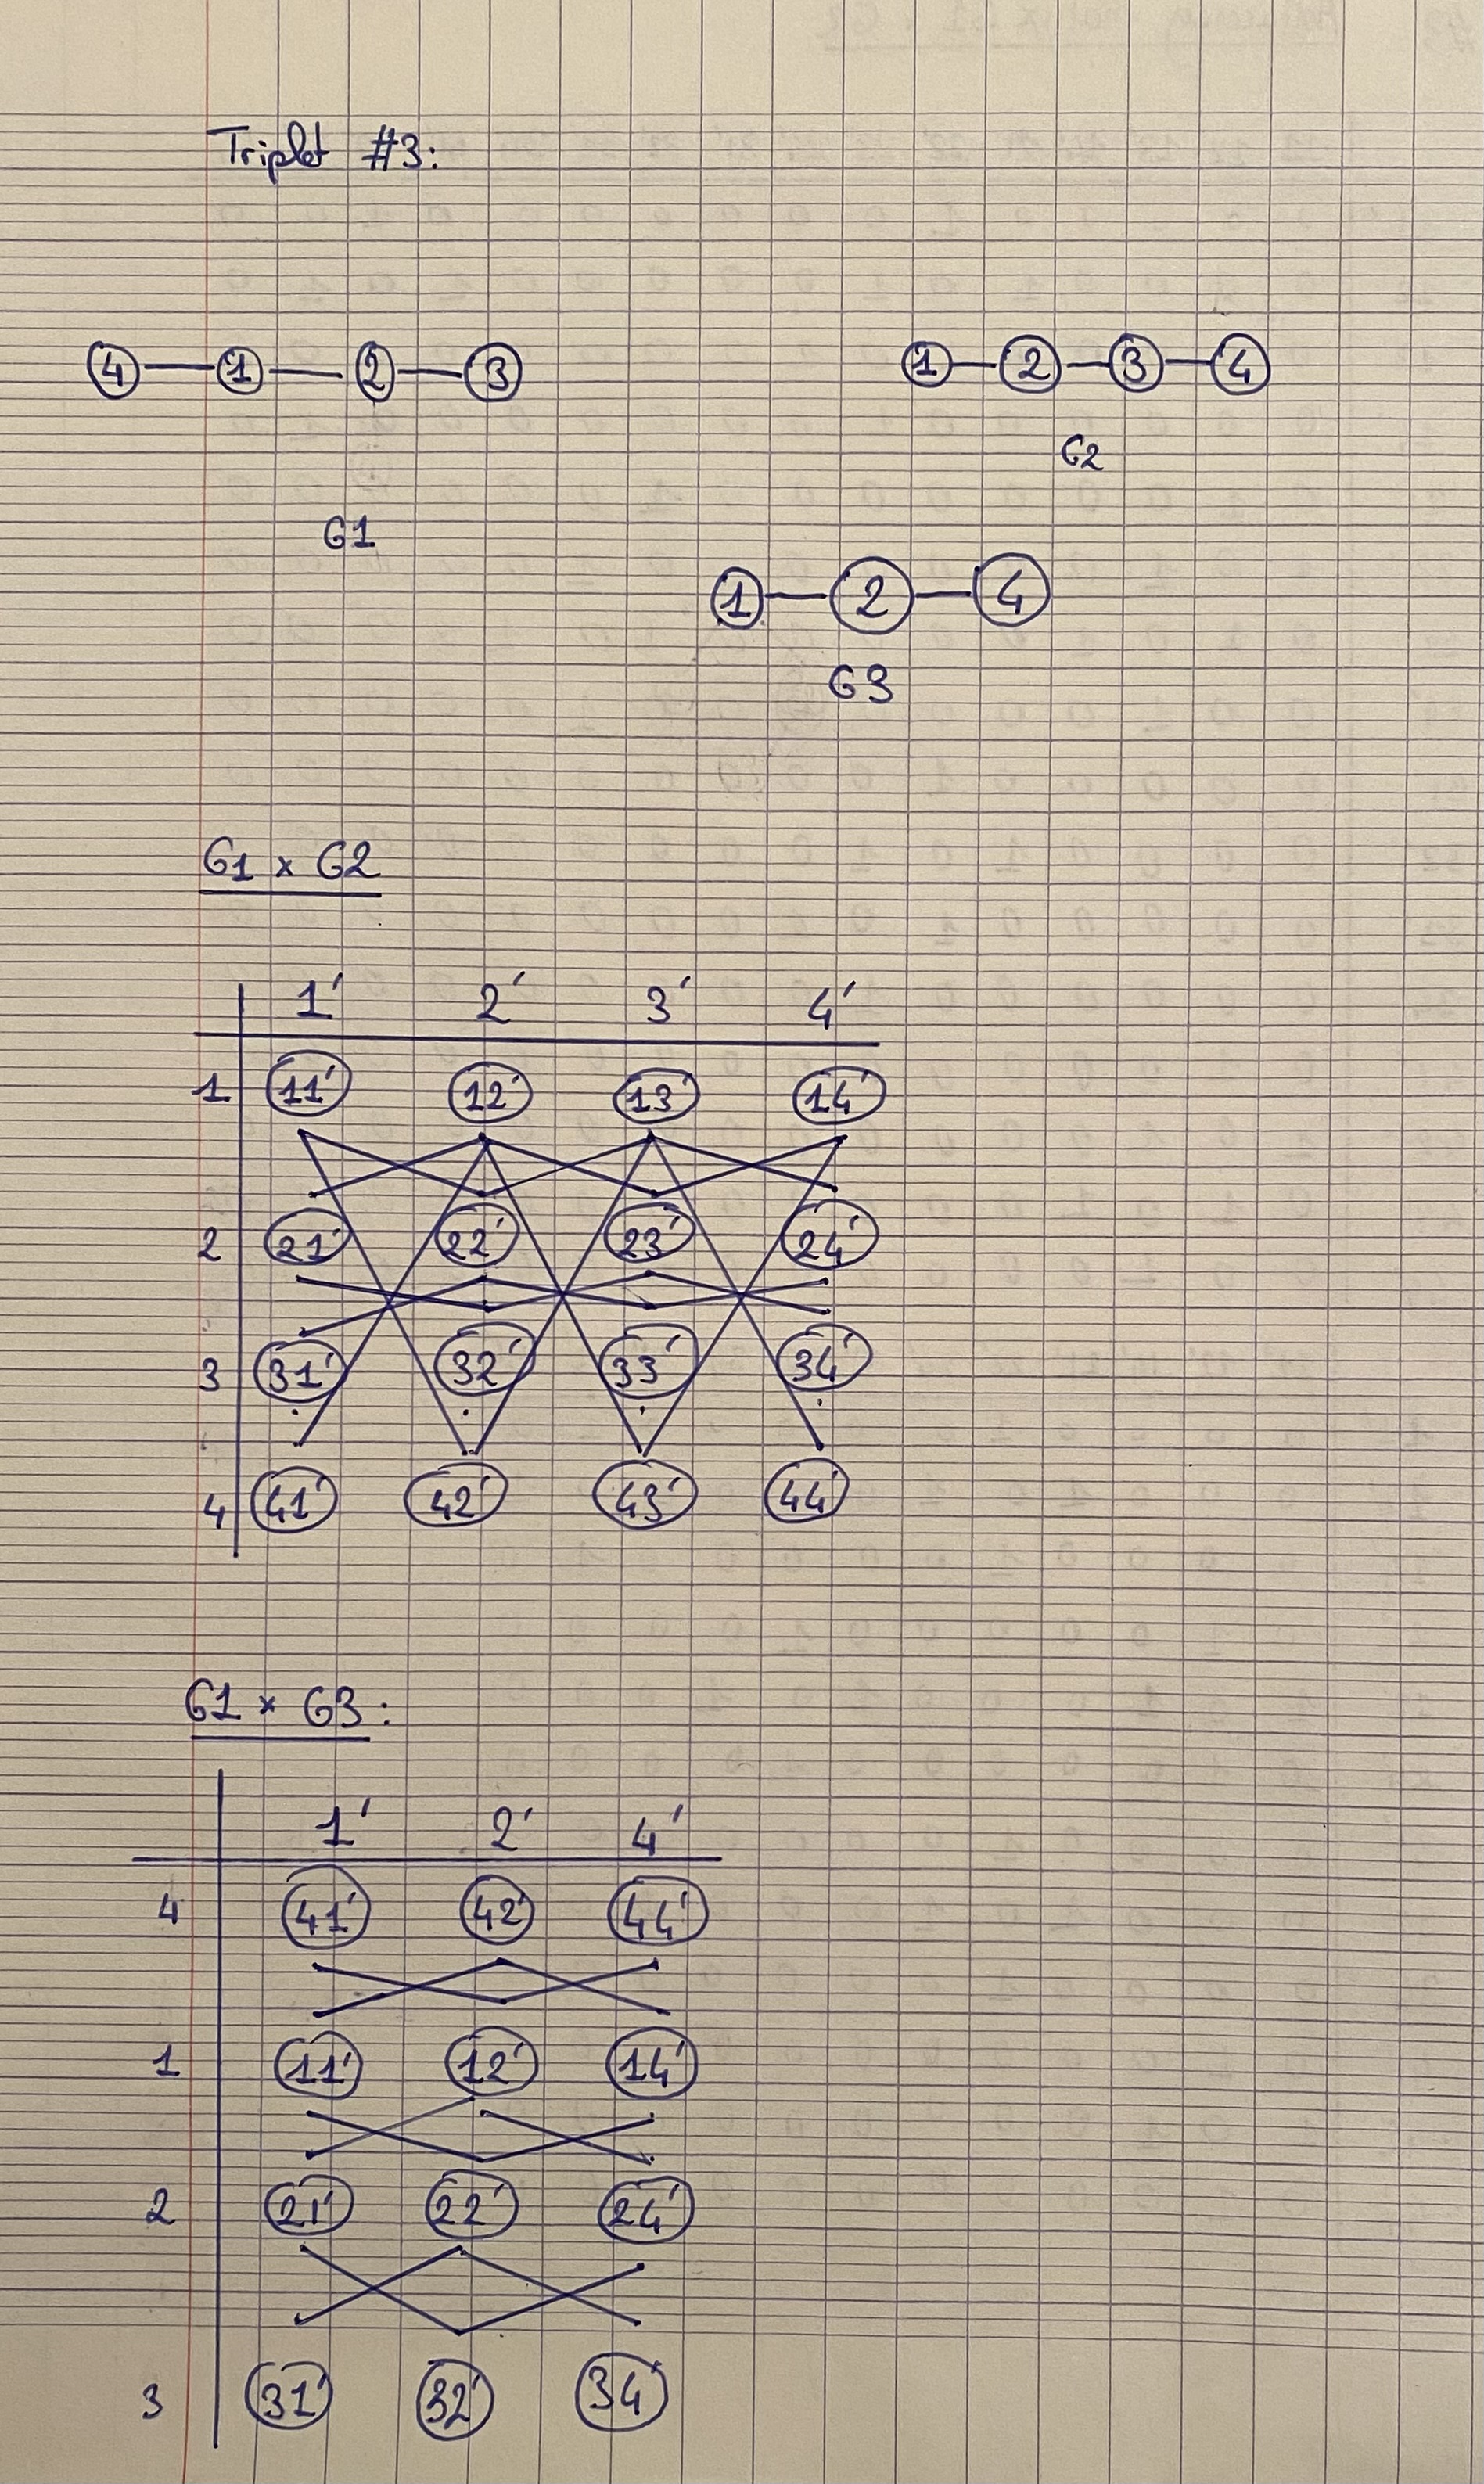 Triplet #3:
4 1 2 3
1 2 3 4
G2
G1
1 2 4
G3
G1 x G2
1' 2' 3' 4'
1 11' 12' 13' 14'
2 21' 22' 23' 24'
3 31' 32' 33' 34'
4 41' 42' 43' 44'
G1 x G3:
1' 2' 4'
4 41' 42' 44'
1 11' 12' 14'
2 21' 22' 24'
3 31' 32' 34'